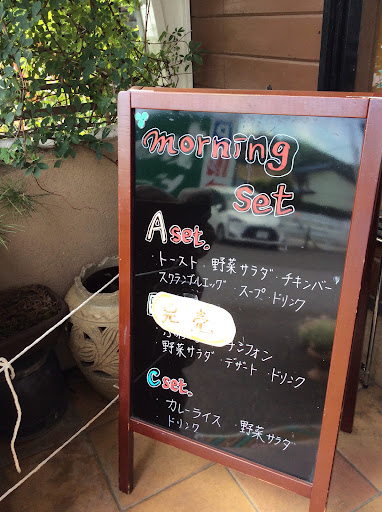 morning
set
A set.
・トースト・野菜サラダ・チキンバー
スクランブルエッグ・スープ・ドリンク
完売
シフォン
野菜サラダ・デザート・ドリンク
C set.
・カレーライス・野菜サラダ
・ドリンク